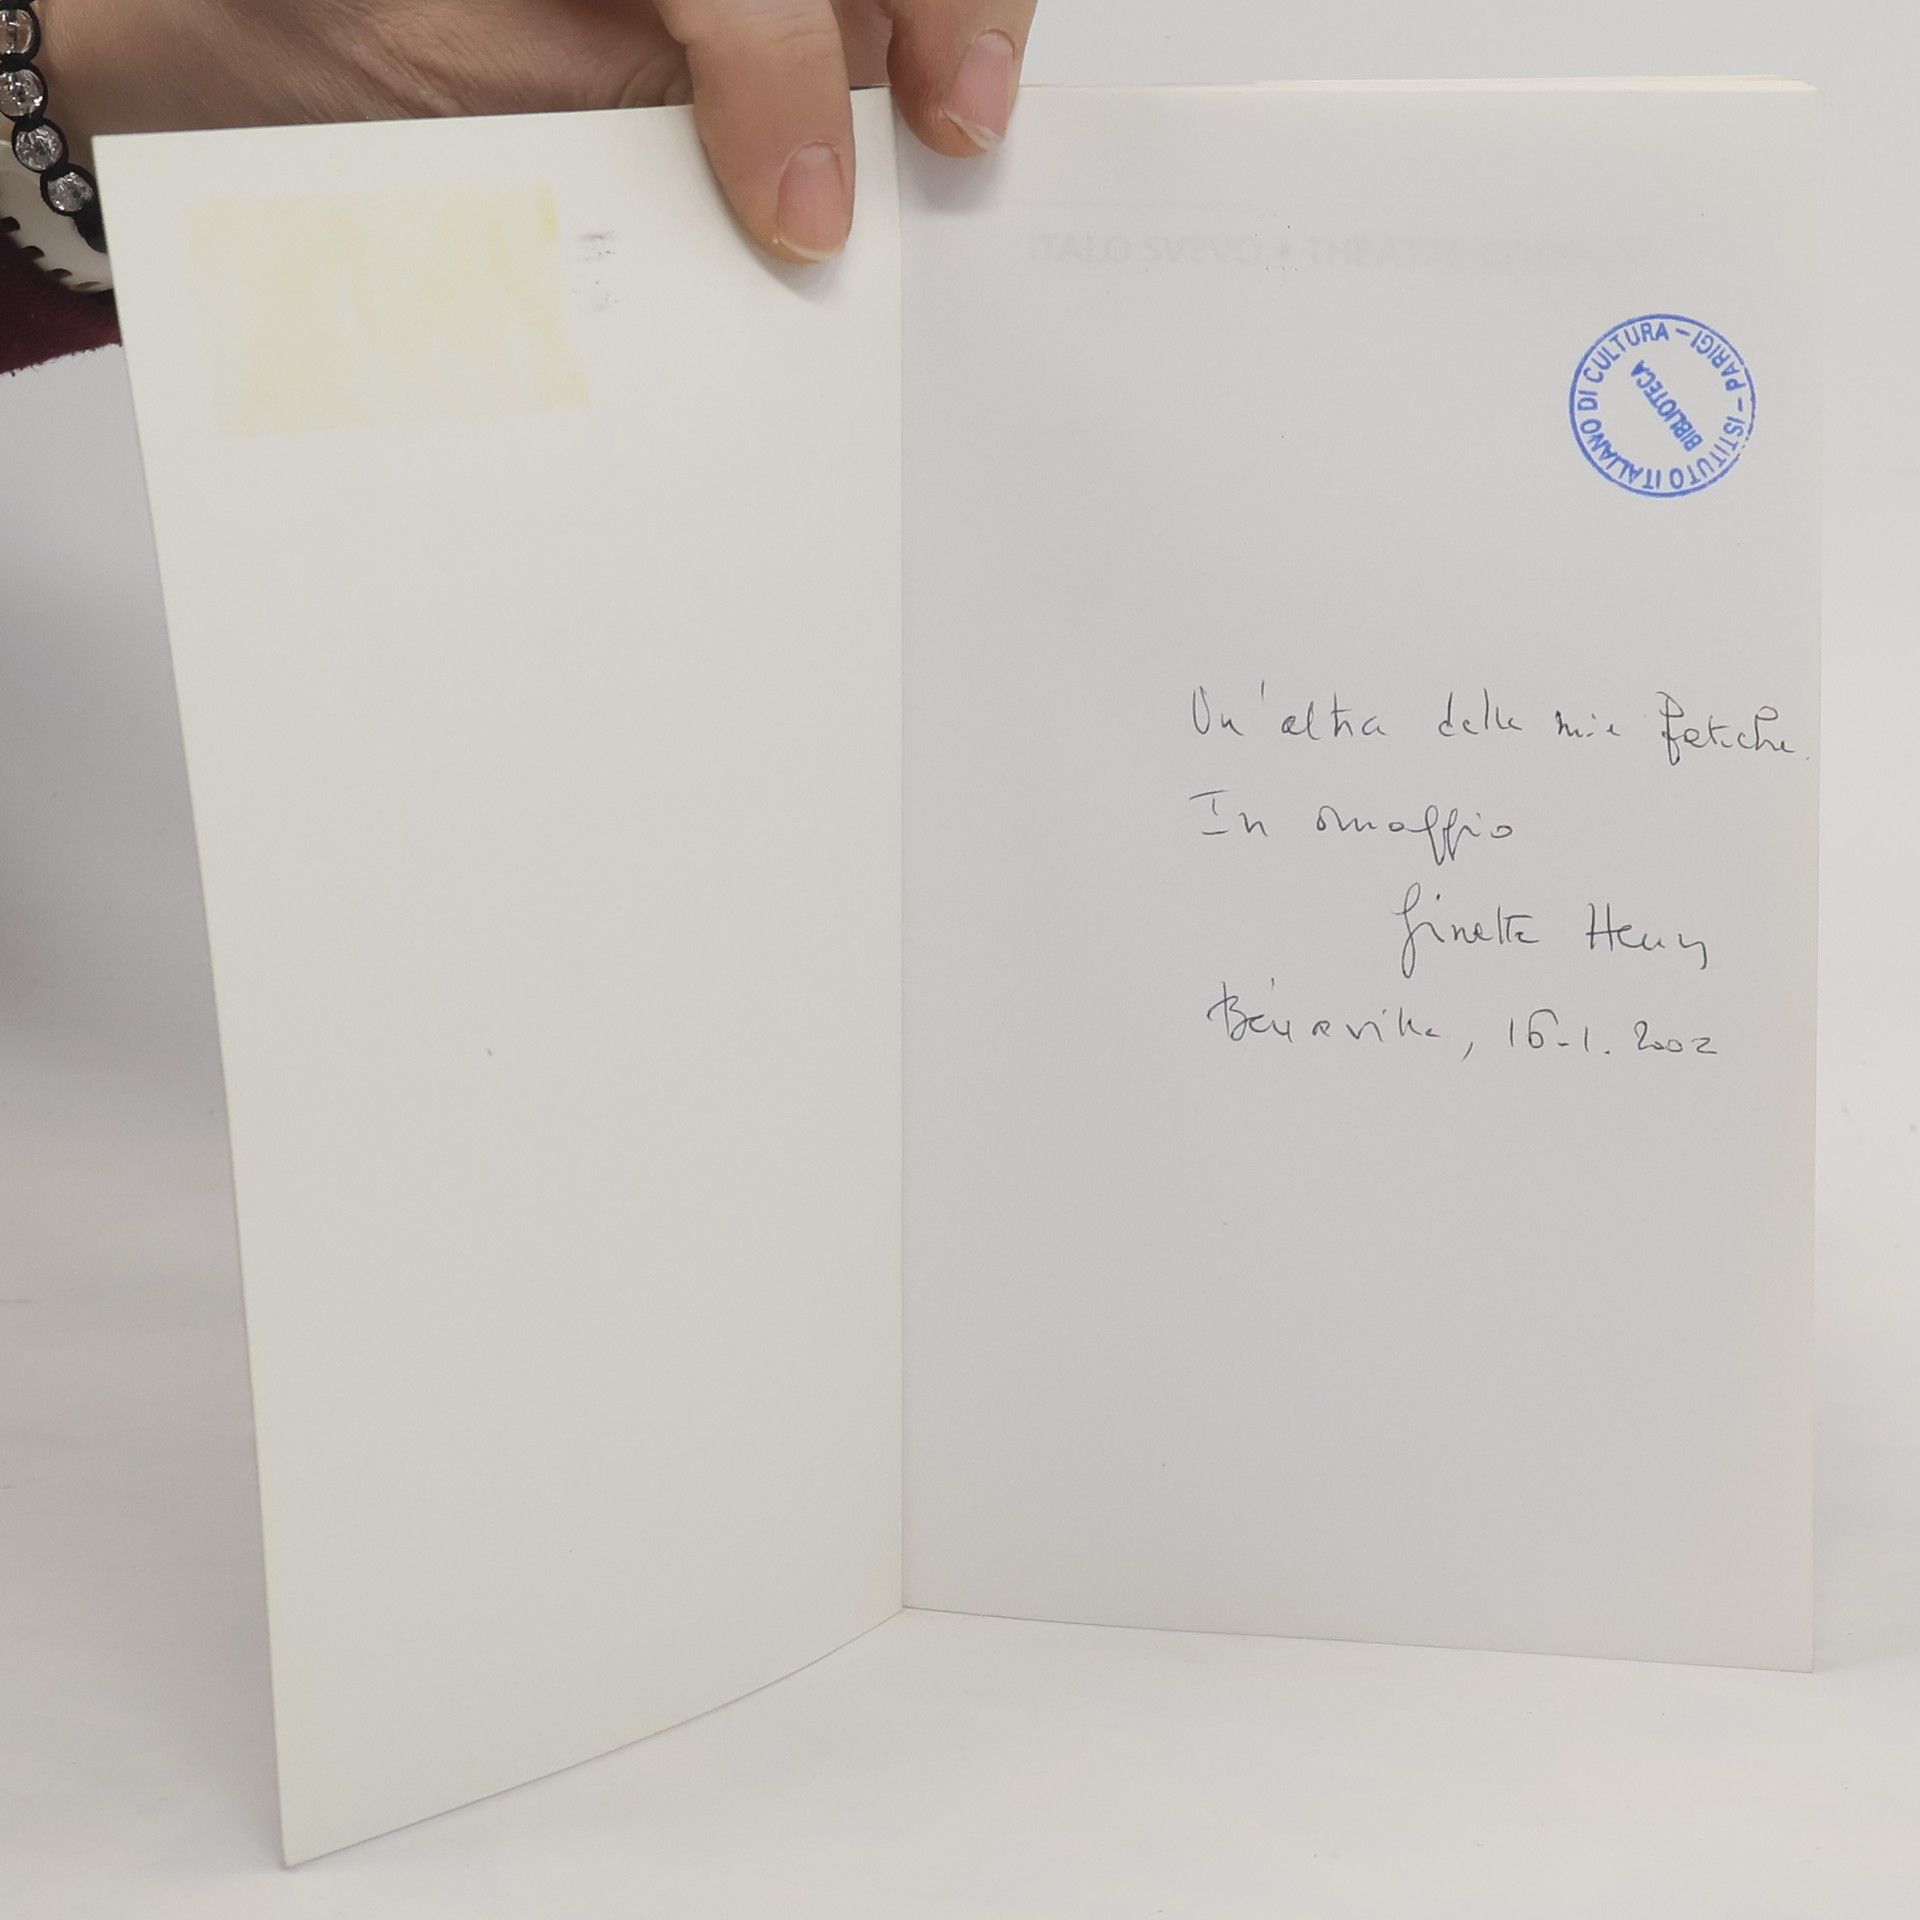 TALO SVEVO • THÉÂTRE
ISTITUTO ITALIANO DI CULTURA - PARIGI -
BIBLIOTECA
Un'altra delle mie fatiche.
In omaggio
Ginette Henry
16-1. 2002